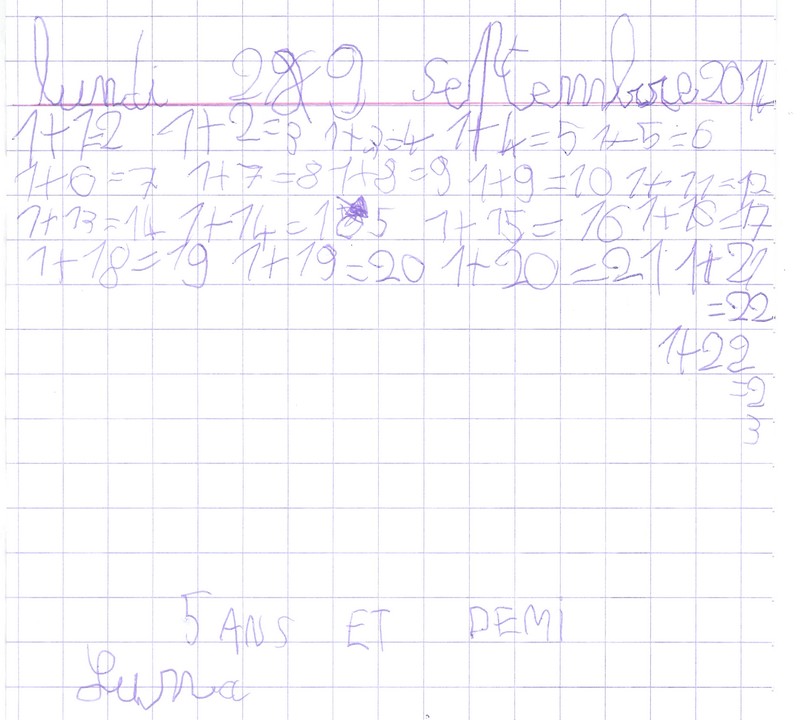 lundi 29 septembre 2014
1+1=2 1+2=3 1+3=4 1+4=5 1+5=6
1+6=7 1+7=8 1+8=9 1+9=10 1+11=12
1+13=14 1+14=15 1+15=16 1+16=17
1+18=19 1+19=20 1+20=21 1+21
=22
1+22
=2
3
5 ANS ET DEMI